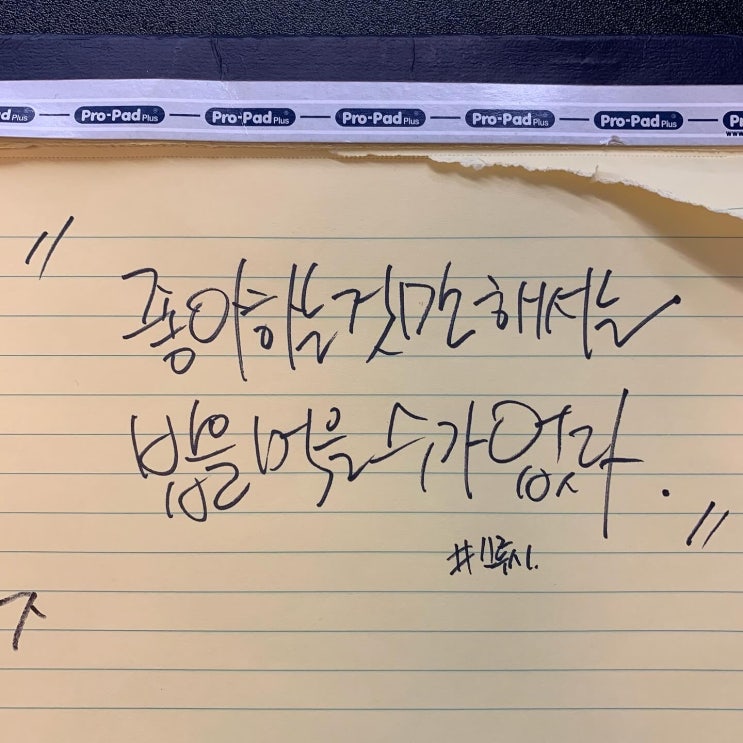 Pro-Pad Plus Pro-Pad Plus Pro-Pad Plus Pro-Pad Plus Pro-Pad Plus
"좋아하는 것만 해서는
밥을 먹을 수가 없다."